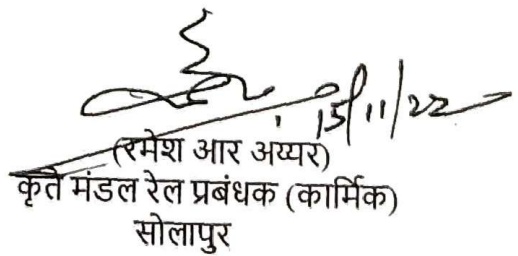 15/11/22
(रमेश आर अय्यर)
कृते मंडल रेल प्रबंधक (कार्मिक)
सोलापुर